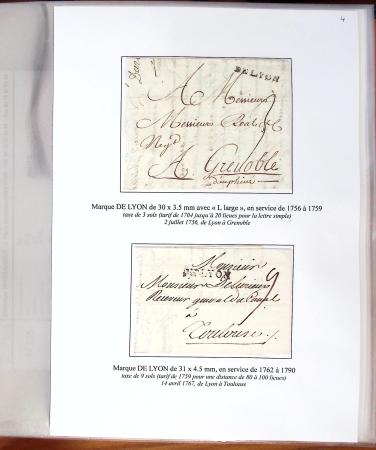 4
DE LYON
A Messieurs
Messieurs Real & C
Neg.ts
A Grenoble
Dauphiné
Marque DE LYON de 30 x 3.5 mm avec « L large », en service de 1756 à 1759
taxe de 3 sols (tarif de 1704 jusqu'à 20 lieues pour la lettre simple)
2 juillet 1756, de Lyon à Grenoble
Monsieur
DE LYON
9
Monsieur
Receveur general du Canal
à
Toulouse
Marque DE LYON de 31 x 4.5 mm, en service de 1762 à 1790
taxe de 9 sols (tarif de 1759 pour une distance de 80 à 100 lieues)
14 avril 1767, de Lyon à Toulouse